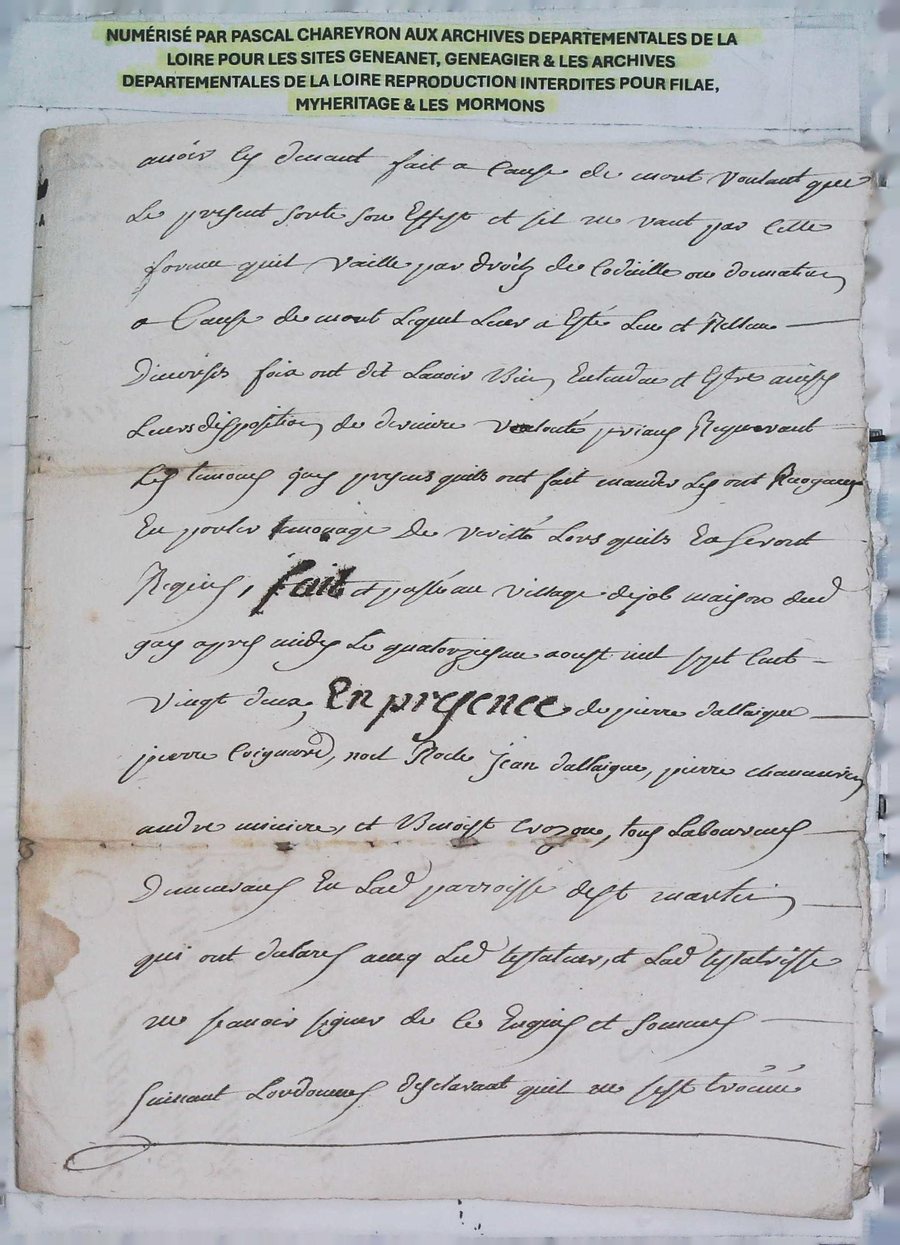 NUMÉRISÉ PAR PASCAL CHAREYRON AUX ARCHIVES DEPARTEMENTALES DE LA
LOIRE POUR LES SITES GENEANET, GENEAGIER & LES ARCHIVES
DEPARTEMENTALES DE LA LOIRE REPRODUCTION INTERDITES POUR FILAE,
MYHERITAGE & LES MORMONS
avoir cy devant fait a cause de mort voulant que
Le present sorte son Effept et sil ne vaut par cette
forme quil vaille par droitz de Codicille ou donnation
a Cause de mort Lequel Leur a Esté Leu et Relleu
Diverses fois ont dit Lavoir bien Entendeu et Estre
Leurs disposition de derniere volonté priant Requerant
Les temoins presens quils ont fait mander Les ont
En porter temoniage de verité Lors quils En seront
Requis, fait et passé au village de job maison dud
gay apres midy Le quatorziesme aoust mil sept Cent
vingt deux, En presence de pierre dallaigue
pierre Coignard, noel Jean dallaigue, pierre
andre miniere, et Benoist crozon, tous Laboureurs
Demeurans En Lad parroisse de st martin
qui ont declares avec Led testateur, et Lad testatrisse
ne scavoir signer de ce Enquis et sommes
suivant Lordonnes desclarant quil ne sest trouvé